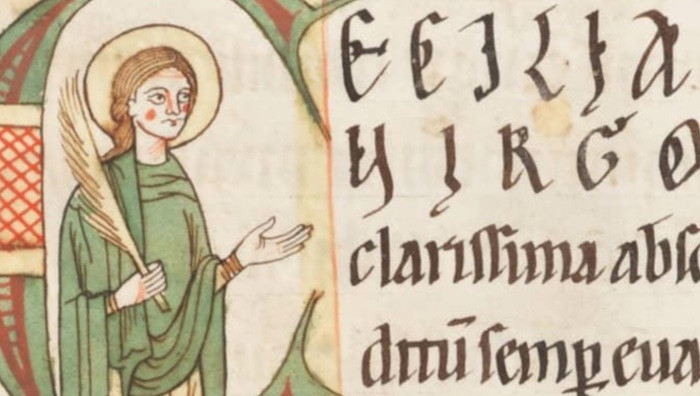 ECILIA
VIRGO
clariſſima abſc
ditū ſemꝑ eua